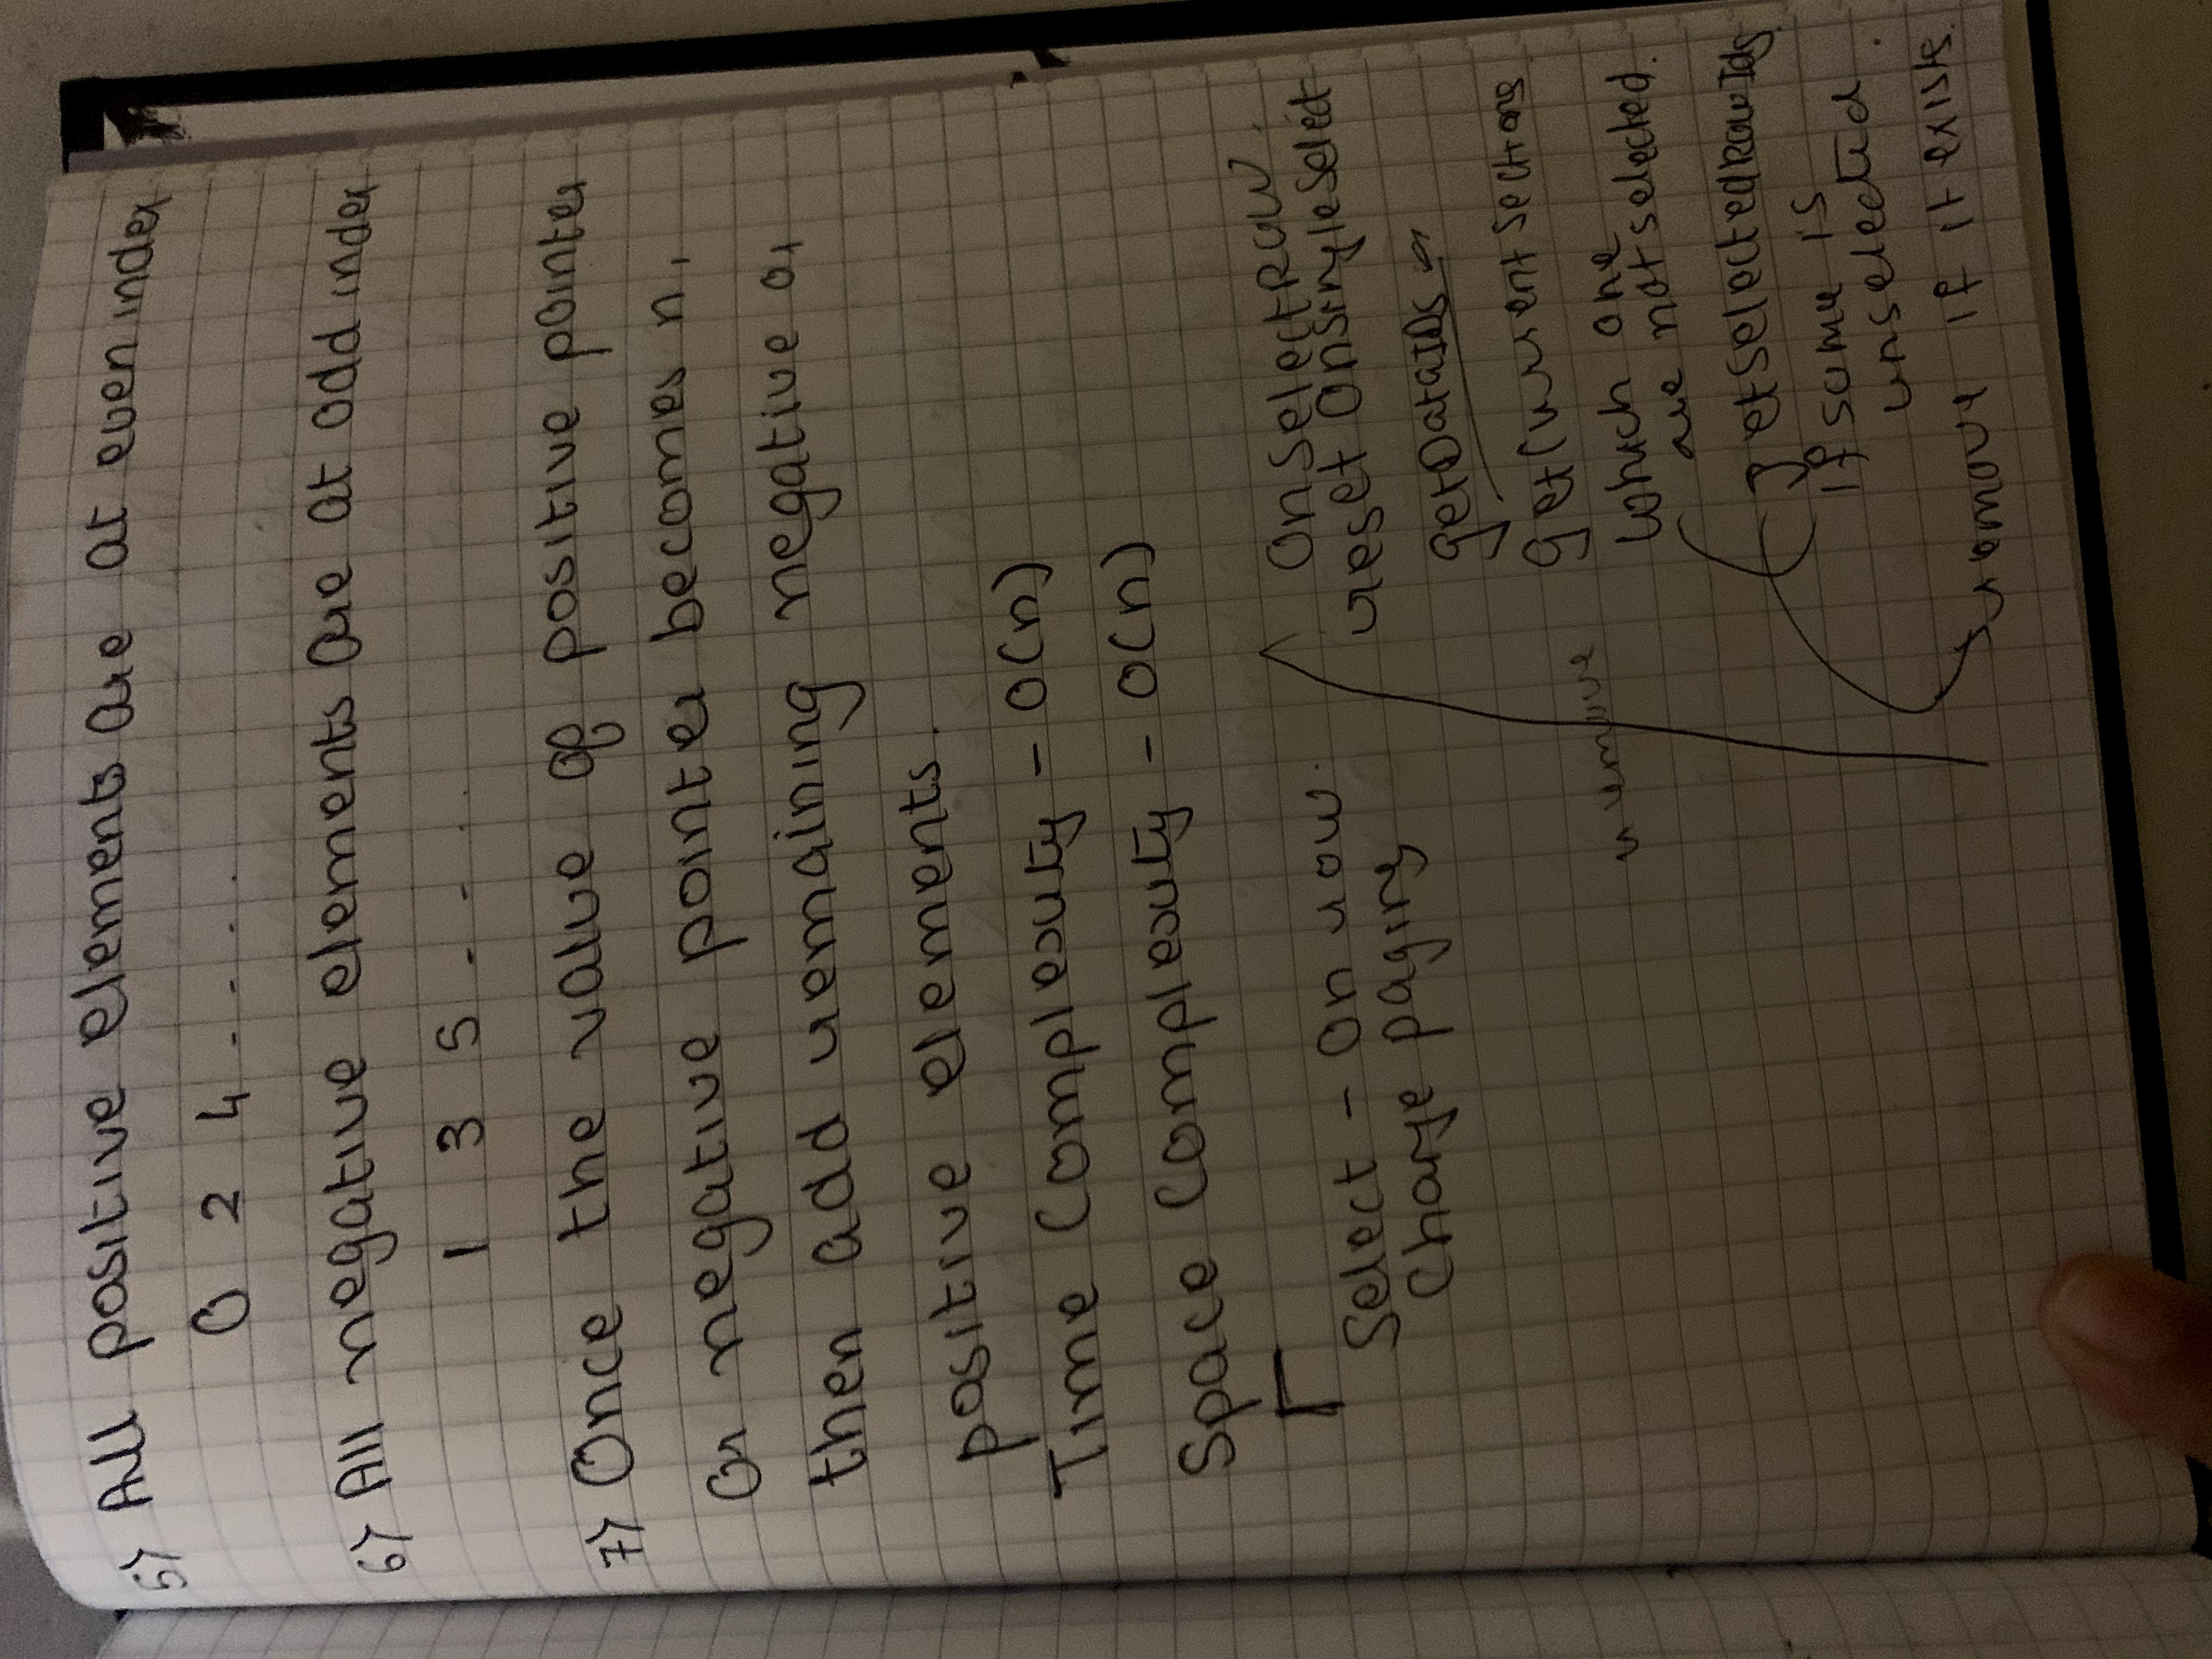 5) All positive elements are at even index
0 2 4 - - - .
6) All negative elements are at odd index
1 3 5 - - - .
7) Once the value of positive pointer
or negative pointer becomes n,
then add remaining negative or
positive elements.
Time Complexity - O(n)
Space Complexity - O(n)
Select - On row.
Change paging
OnSelectRow.
reset OnSingleSelect
getDataIDs
getCurrentSections
remove
which one
are not selected.
getSelectedRowIds
if some is
unselected.
remove if it exists.